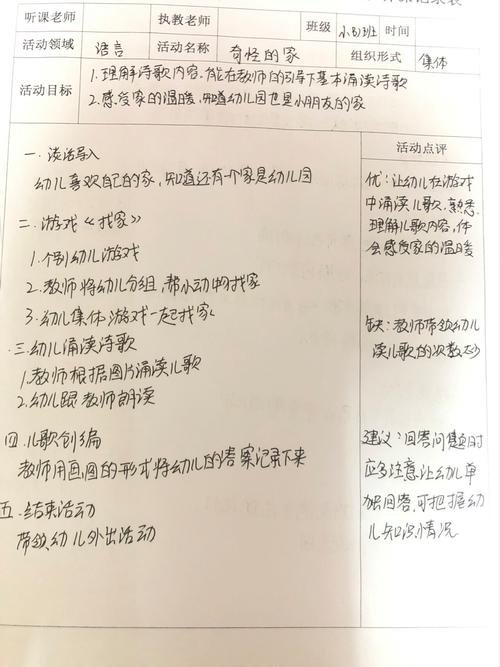 听课老师 执教老师 班级 小(3)班 时间
活动领域 语言 活动名称 奇怪的家 组织形式 集体
活动目标
1.理解诗歌内容.能在教师的引导下基本诵读诗歌
2.感受家的温暖,知道幼儿园也是小朋友的家
一.谈话导入
幼儿喜欢自己的家,知道还有一个家是幼儿园
二.游戏《找家》
1.个别幼儿游戏
2.教师将幼儿分组,帮小动物找家
3.幼儿集体游戏一起找家
三.幼儿诵读诗歌
1.教师根据图片诵读儿歌
2.幼儿跟教师朗读
四.儿歌创编
教师用画图的形式将幼儿的答案记录下来
五.结束活动
带领幼儿外出活动
活动点评
优:让幼儿在游戏
中诵读儿歌.熟悉
理解儿歌内容,体
会感受家的温暖
缺:教师带领幼儿
读儿歌的次数太少
建议:回答问题时
应多注意让幼儿单
独回答,可把握幼
儿知识情况